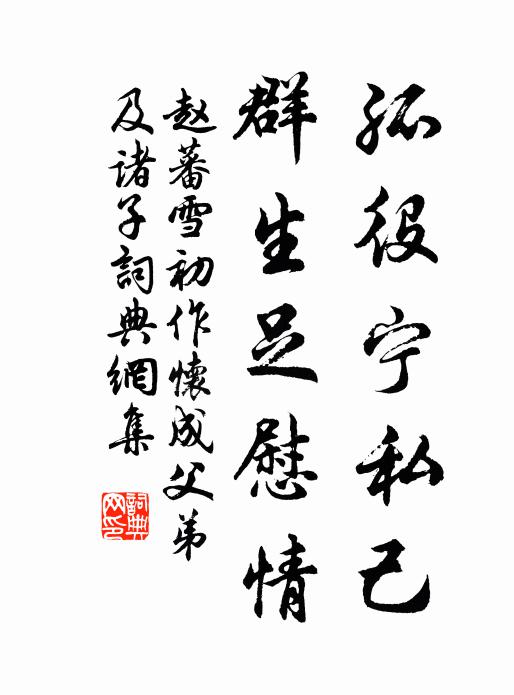 孤役宁私己
群生足慰情
赵蕃雪初作懷成父弟
及諸子詞典網集
詞典
网印